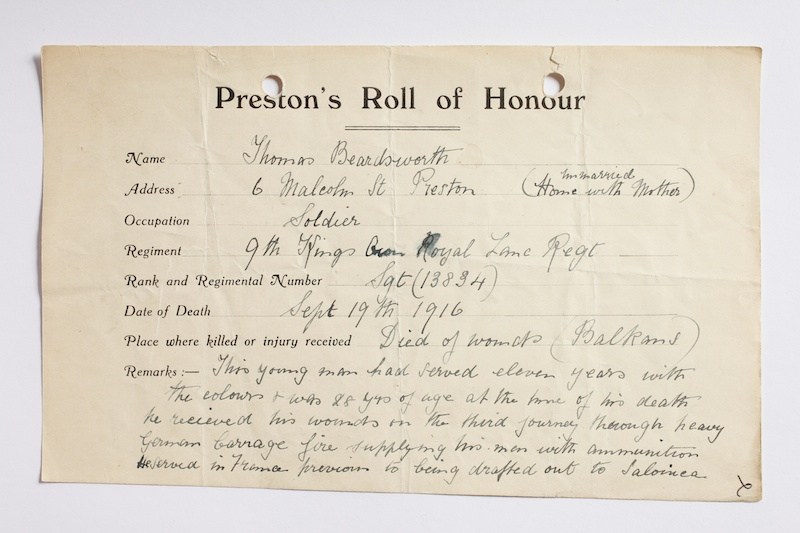 Preston's Roll of Honour
Name Thomas Beardsworth
Address 6 Malcolm St Preston (Home with Mother)
unmarried
Occupation Soldier
Regiment 9th Kings Own Royal Lanc Regt
Rank and Regimental Number Sgt (13834)
Date of Death Sept 19th 1916
Place where killed or injury received Died of wounds (Balkans)
Remarks:— This young man had served eleven years with
the colours & was 28 yrs of age at the time of his death
he recieved his wounds on the third journey through heavy
German barrage fire supplying his men with ammunition
He served in France previous to being drafted out to Salonica
2